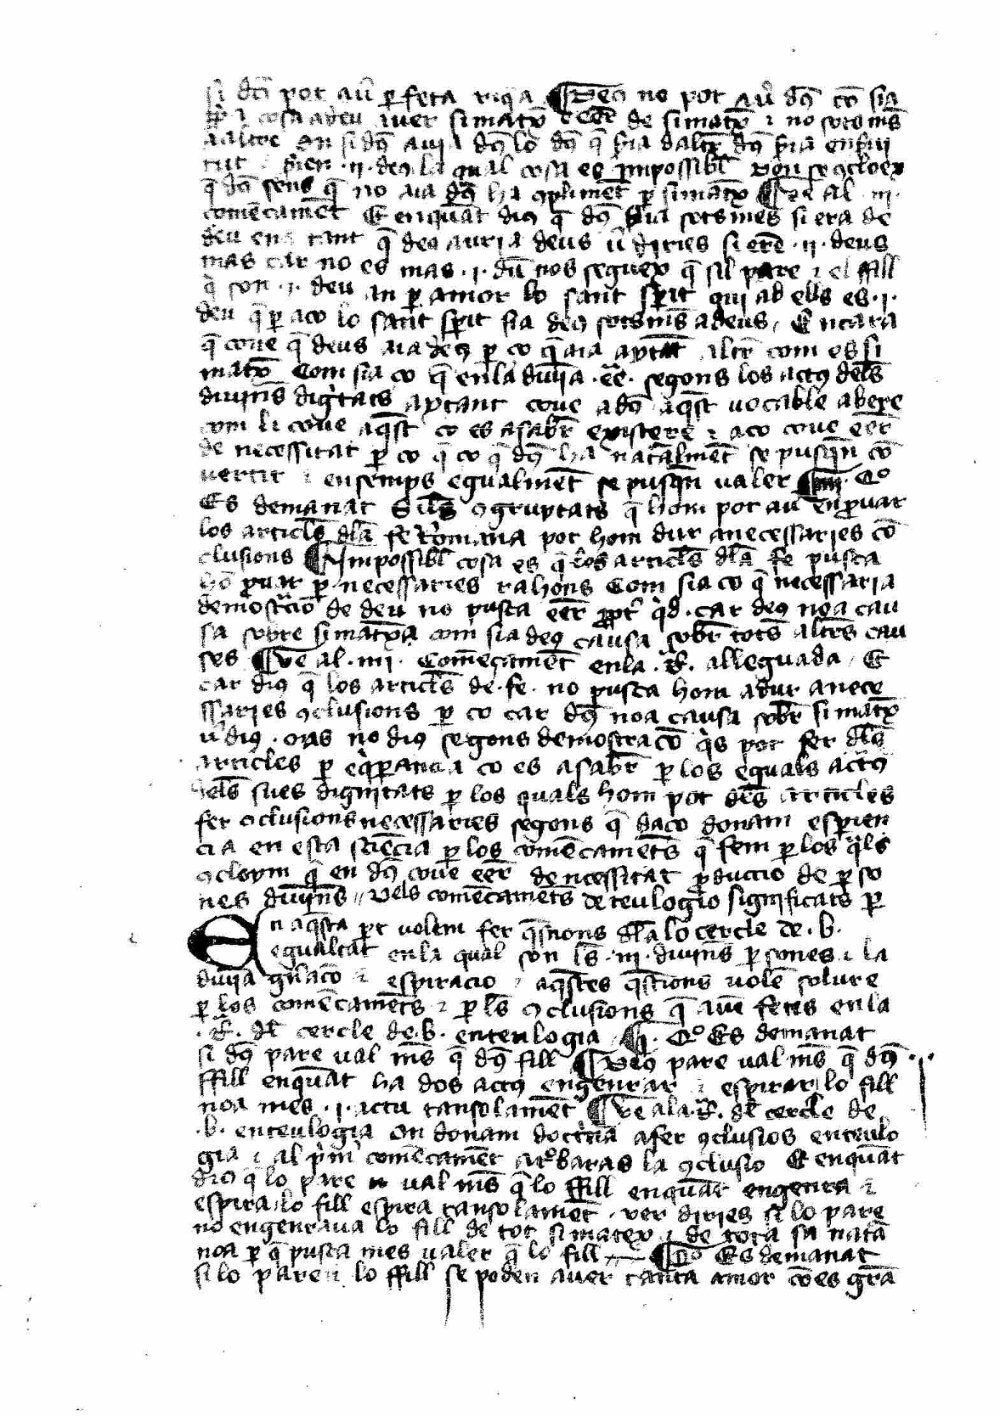 si dē pot auer perfeta riqa ¶ Deꝰ no pot auer dꝰ com sia
cosa a deu auer si matex e eēr de si matex ⁊ no sots mes
a altre on si dꝰ auia dꝰ lo dꝰ q̄
.ii. deꝰ la qual cosa es impossibl
q̄ dꝰ sens q̄ no aia dꝰ ha compliment per si matex ¶ Ve al .iii.
comēcamēt E en quāt dius q̄ dꝰ seria sots mes si era de
deu en tant q̄ deꝰ auria deus ver diries si erē .ii. deus
mas car no es mas .i. deu nos seguex q̄ sil pare ⁊ el ffill
q̄ son .i. deu an per amor lo sant sperit qui ab ells es .i.
deu q̄ per aco lo sant sperit sia deꝰ sots mes a deus / Encara
q̄ coue q̄ deus aia deꝰ per co q̄ aia aytāt altre com es si
matex Com sia co q̄ en la diuina .eē. segons los actꝰ dels
diuins dignitats aytant coue a deu aqst vocable abere
com li coue aqst co es a sabr existere ⁊ aco coue eēr
de necessitat per co q̄ co q̄ dꝰ ha naturalmēt se pusqn cō
uertir ⁊ ensemps egualmēt se pusqn valer ¶ .iiii. Qº
Es demanat Si les ꝯgruytats q̄ hom pot auer en prouar
los articles dla fe romana pot hom dur a necessaries cō
clusions ¶ Impossibl cosa es q̄ los articles dla fe pusca
hō prouar per necessaries rahons Com sia co q̄ necessaria
demostracio de deu no pusca eēr propter qid . car deꝰ no a cau
sa sobre si matexa com sia deꝰ causa sobre tots altres cau
ses ¶ Ve al .iiii. Comēcamēt en la .R. alleguada / E
car dius q̄ los articles de .fe. no pusca hom adur a nece
ssaries ꝯclusions per co car dꝰ no a causa sobre si matex
ver dius . mas no dius segons demostracō qis pot fer dls
articles per eqiperancia co es a sabr per los equals actus
dels sues dignitats per los quals hom pot dels articles
fer ꝯclusions necessaries segons q̄ daco donam esperien
cia en esta sciēcia per los comēcaments q̄ fem per los qls
ꝯcloym q̄ en dꝰ coue eēr de necessitat produccio de perso
nes diuines // Dels comēcamets de teulogia significats per
En aqsta part volem fer qstions dla lo cercle de .b.
egualtat en la qual son les .iii. diuins persones ⁊ la
diuina gnāco ⁊ espiracio / aqstes qstions volē solure
per los comēcamēts ⁊ per ls ꝯclusions q̄ auē fetes en la
.R. dl cercle de .b. en teulogia ¶ .i. Qº Es demanat
si dꝰ pare val mes q̄ dꝰ fill ¶ Deꝰ pare val mes q̄ dꝰ
ffill en quāt ha dos actꝰ engenrar ⁊ espirar / lo fill
no a mes .i. actu tan solamēt ¶ Ve a la .R. dl cercle de
.b. en teulogia on donam doctrina a fer ꝯclusios en teulo
gia ⁊ al prim comēcamēt trobaras la ꝯclusio E en quāt
dius q̄ lo pare val mes q̄ lo ffill en quāt engenra ⁊
espira / lo fill espira tan solamēt . ver diries si lo pare
no engenraua lo fill de tot si matex ⁊ de tota sa natā
no a per q̄ pusca mes valer q̄ lo fill ¶ .ii. Qº Es demanat
si lo pare n lo ffill se poden auer tanta amor cō es grā